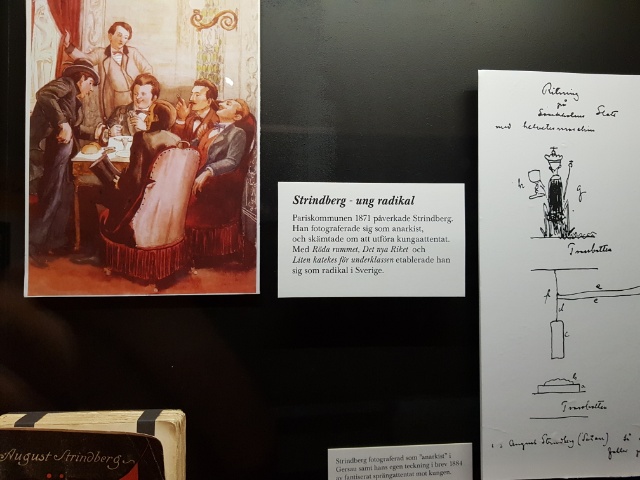 Strindberg - ung radikal
Pariskommunen 1871 påverkade Strindberg.
Han fotograferade sig som anarkist,
och skämtade om att utföra kungaattentat.
Med Röda rummet, Det nya Riket och
Liten katekes för underklassen etablerade han
sig som radikal i Sverige.
Ritning
på
Stockholms Slott
med helvetesmaschin
h
g
Trossbotten
f
e
e
d
c
b
a
Trossbotten
August Strindberg
August Strindberg
Strindberg fotograferad som "anarkist" i
Gersau samt hans egen teckning i brev 1884
av fantiserat sprängattentat mot kungen.